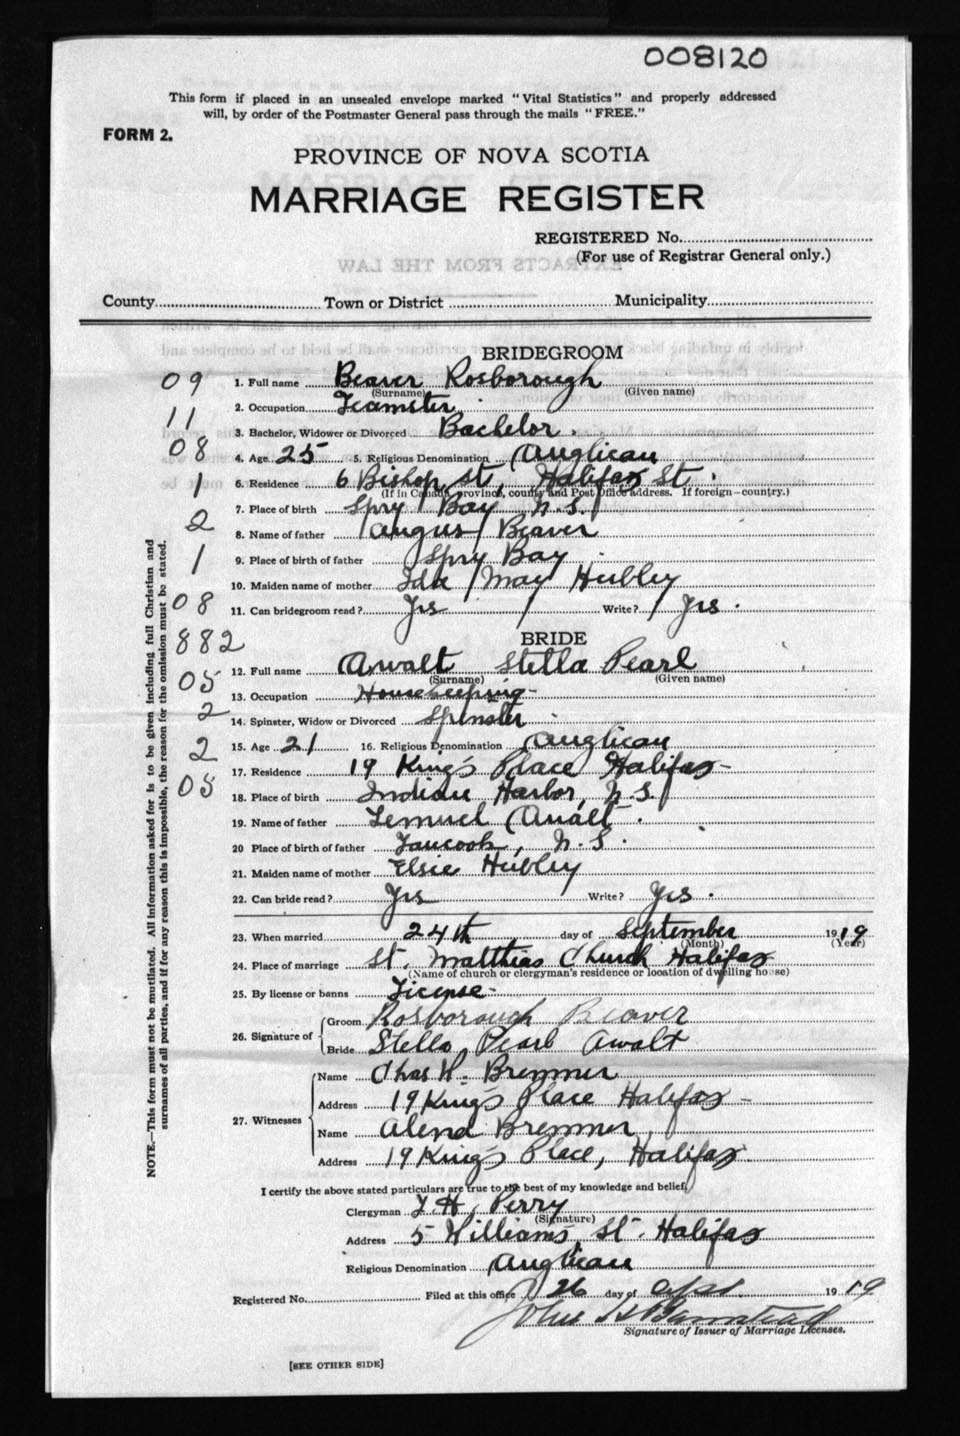 008120
This form if placed in an unsealed envelope marked "Vital Statistics" and properly addressed
will, by order of the Postmaster General pass through the mails "FREE."
FORM 2.
PROVINCE OF NOVA SCOTIA
MARRIAGE REGISTER
REGISTERED No.
(For use of Registrar General only.)
County Town or District Municipality
BRIDEGROOM
09
1. Full name Beaver Rosborough
(Surname) (Given name)
2. Occupation Teamster
11
3. Bachelor, Widower or Divorced Bachelor.
08
4. Age 25 5. Religious Denomination Anglican
1
6. Residence 6 Bishop St, Halifax St.
(If in Canada, province, county and Post Office address. If foreign—country.)
7. Place of birth Spry Bay N.S.
2
8. Name of father Angus Beaver
1
9. Place of birth of father Spry Bay
10. Maiden name of mother Ida May Hubley
08
11. Can bridegroom read? Yes Write? Yes.
882
BRIDE
12. Full name Awalt Stella Pearl
(Surname) (Given name)
05
13. Occupation Housekeeping
2
14. Spinster, Widow or Divorced Spinster
2
15. Age 21 16. Religious Denomination Anglican
17. Residence 19 King's Place Halifax
05
18. Place of birth Indian Harbor, N.S.
19. Name of father Lemuel Awalt.
20 Place of birth of father Tancook, N.S.
21. Maiden name of mother Elsie Hubley
22. Can bride read? Yes Write? Yes.
23. When married 24th day of September 1919
(Month) (Year)
24. Place of marriage St. Matthias Church Halifax
(Name of church or clergyman's residence or location of dwelling house)
25. By license or banns License
26. Signature of Groom Rosborough Beaver
Bride Stella Pearl Awalt
27. Witnesses Name Chas W. Bremner
Address 19 King's Place Halifax
Name Alend Bremner
Address 19 King's Place, Halifax
I certify the above stated particulars are true to the best of my knowledge and belief,
Clergyman T. H. Perry
(Signature)
Address 5 Williams St. Halifax
Religious Denomination Anglican
Registered No. Filed at this office 26 day of 1919
John H
Signature of Issuer of Marriage Licenses.
[SEE OTHER SIDE]
NOTE.—This form must not be mutilated. All information asked for is to be given including full Christian and
surnames of all parties, and if for any reason this is impossible, the reason for the omission must be stated.